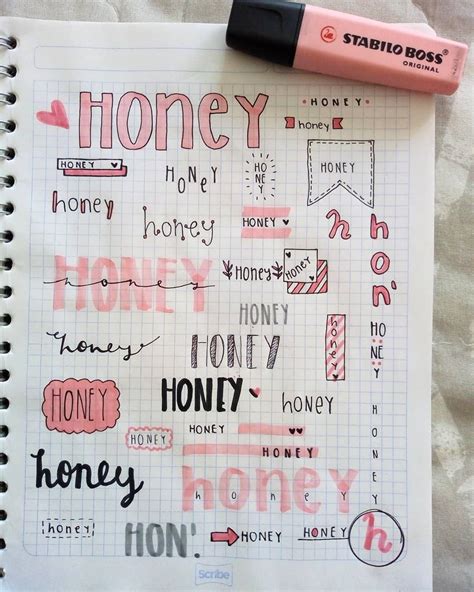 STABILO BOSS
ORIGINAL
HONEY
HONEY
honey
HONEY
HONEY
HO
NE
Y
HONEY
honey
honey
HONEY
h
hon'
HONEY
honey
Honey
Honey
HONEY
HONEY
honey
honey
HONEY
honey
HONEY
HONEY
honey
HONEY
HONEY
HONEY
HONEY
honey
honey
honey
HONEY
honey
HON'.
HONEY
HONEY
h
Scribe